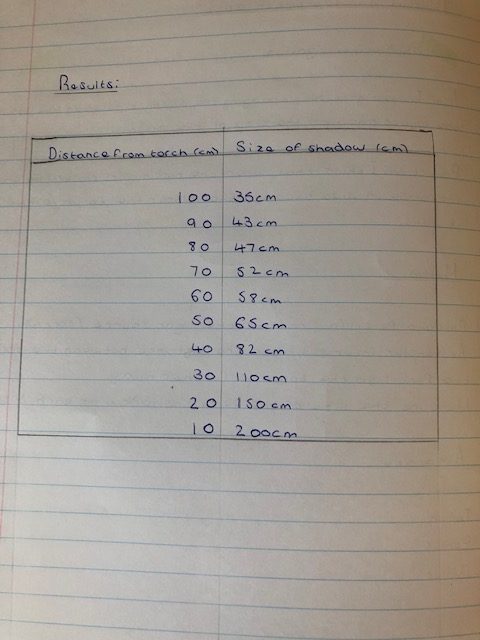 Results:
Distance from torch (cm) Size of shadow (cm)
100 35cm
90 43cm
80 47cm
70 52cm
60 58cm
50 65cm
40 82 cm
30 110cm
20 150cm
10 200cm